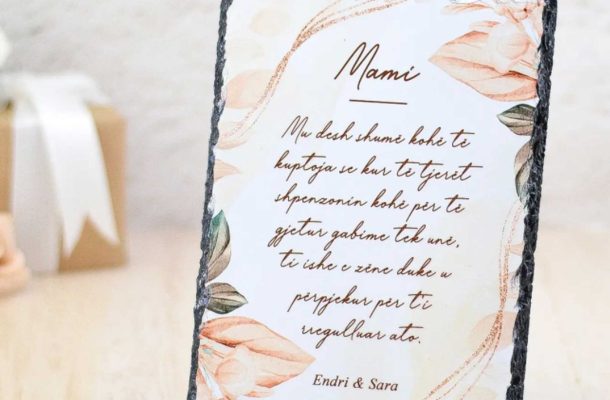 Mami
Mu desh shumë kohë të
kuptoja se kur të tjerët
shpenzonin kohë për të
gjetur gabime tek unë,
ti ishe e zëne duke u
përpjekur për t'i
rregulluar ato.
Endri & Sara